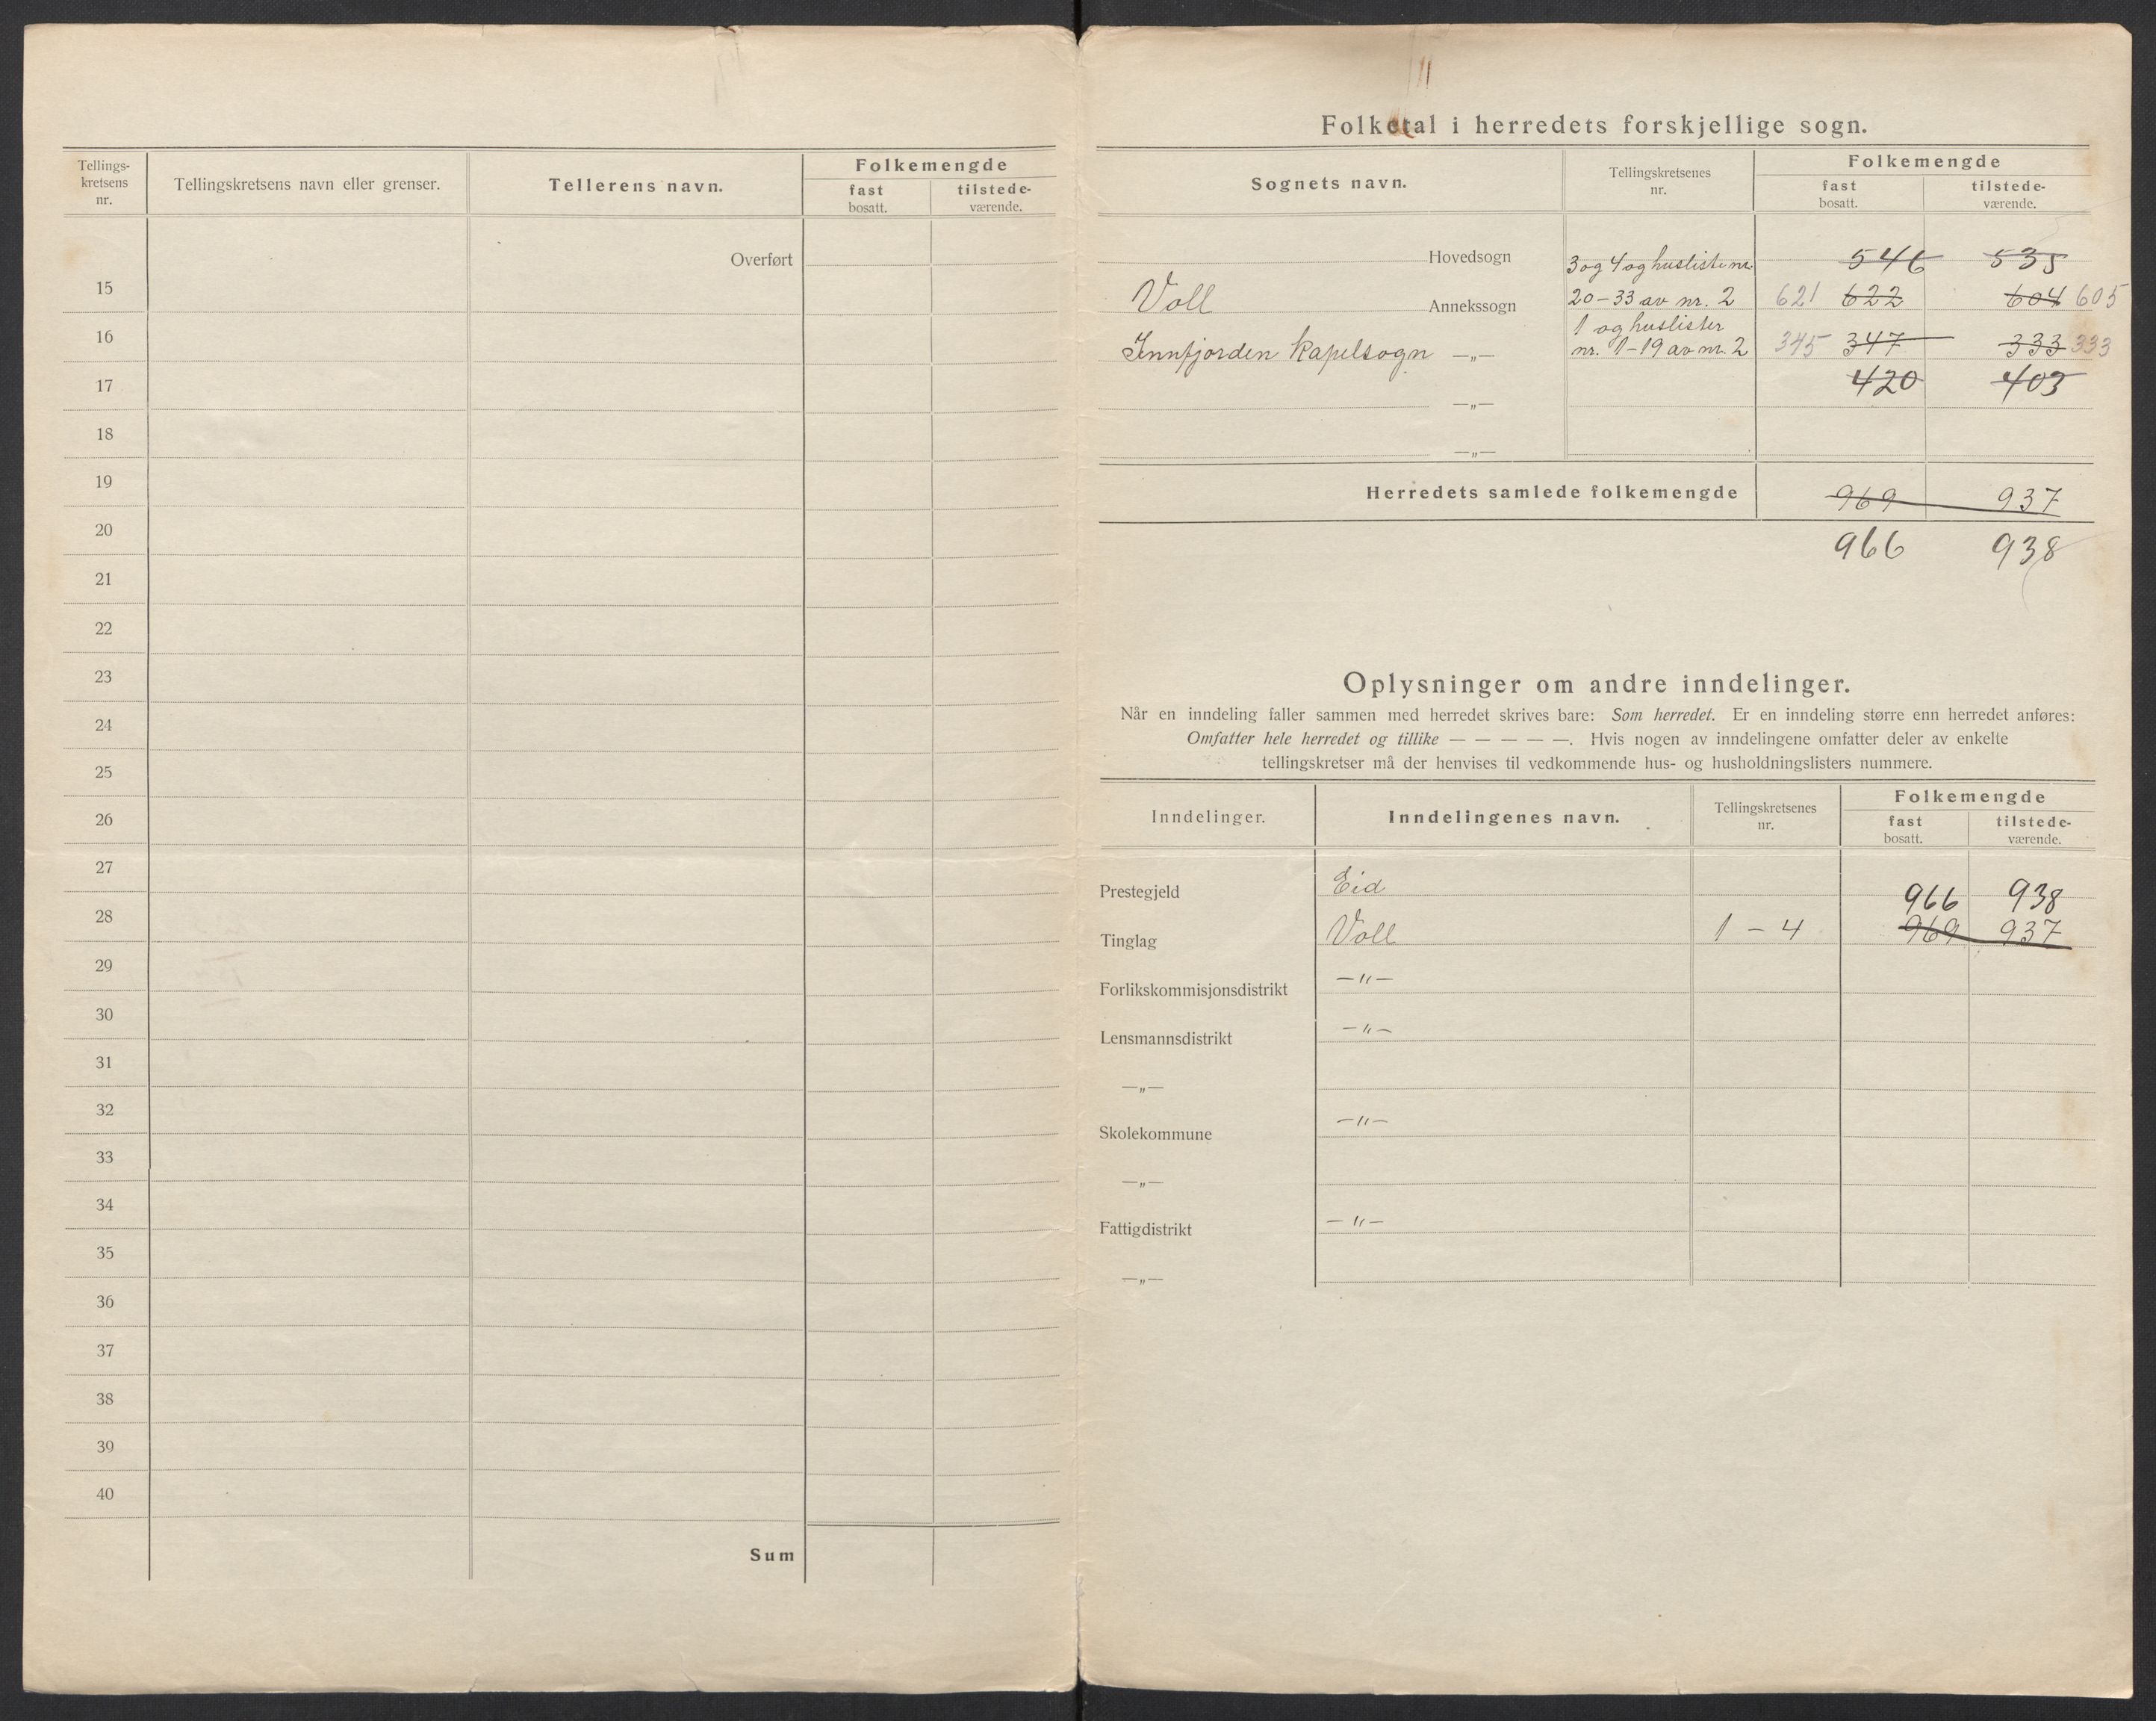 Tellings-
kretsens
nr.
Tellingskretsens navn eller grenser.
Tellerens navn.
Folkemengde
fast
bosatt.
tilstede-
værende.
Overført
15
16
17
18
19
20
21
22
23
24
25
26
27
28
29
30
31
32
33
34
35
36
37
38
39
40
Sum
Folketal i herredets forskjellige sogn.
Sognets navn.
Tellingskretsenes
nr.
Folkemengde
fast
bosatt.
tilstede-
værende.
Hovedsogn 3 og 4 og husliste nr. 546 535
Voll Annekssogn 20-33 av nr. 2 621 622 604 605
1 og huslister
Innfjorden Kapelsogn —„— nr. 1-19 av nr. 2 345 347 333 333
420 403
—„—
—„—
Herredets samlede folkemengde 969 937
966 938
Oplysninger om andre inndelinger.
Når en inndeling faller sammen med herredet skrives bare: Som herredet. Er en inndeling større enn herredet anføres:
Omfatter hele herredet og tillike — — — — —. Hvis nogen av inndelingene omfatter deler av enkelte
tellingskretser må der henvises til vedkommende hus- og husholdningslisters nummere.
Inndelinger.
Inndelingenes navn.
Tellingskretsenes
nr.
Folkemengde
fast
bosatt.
tilstede-
værende.
Prestegjeld Eid 966 938
Tinglag Voll 1 - 4 969 937
Forlikskommisjonsdistrikt —„—
Lensmannsdistrikt —„—
—„—
Skolekommune —„—
—„—
Fattigdistrikt —„—
—„—